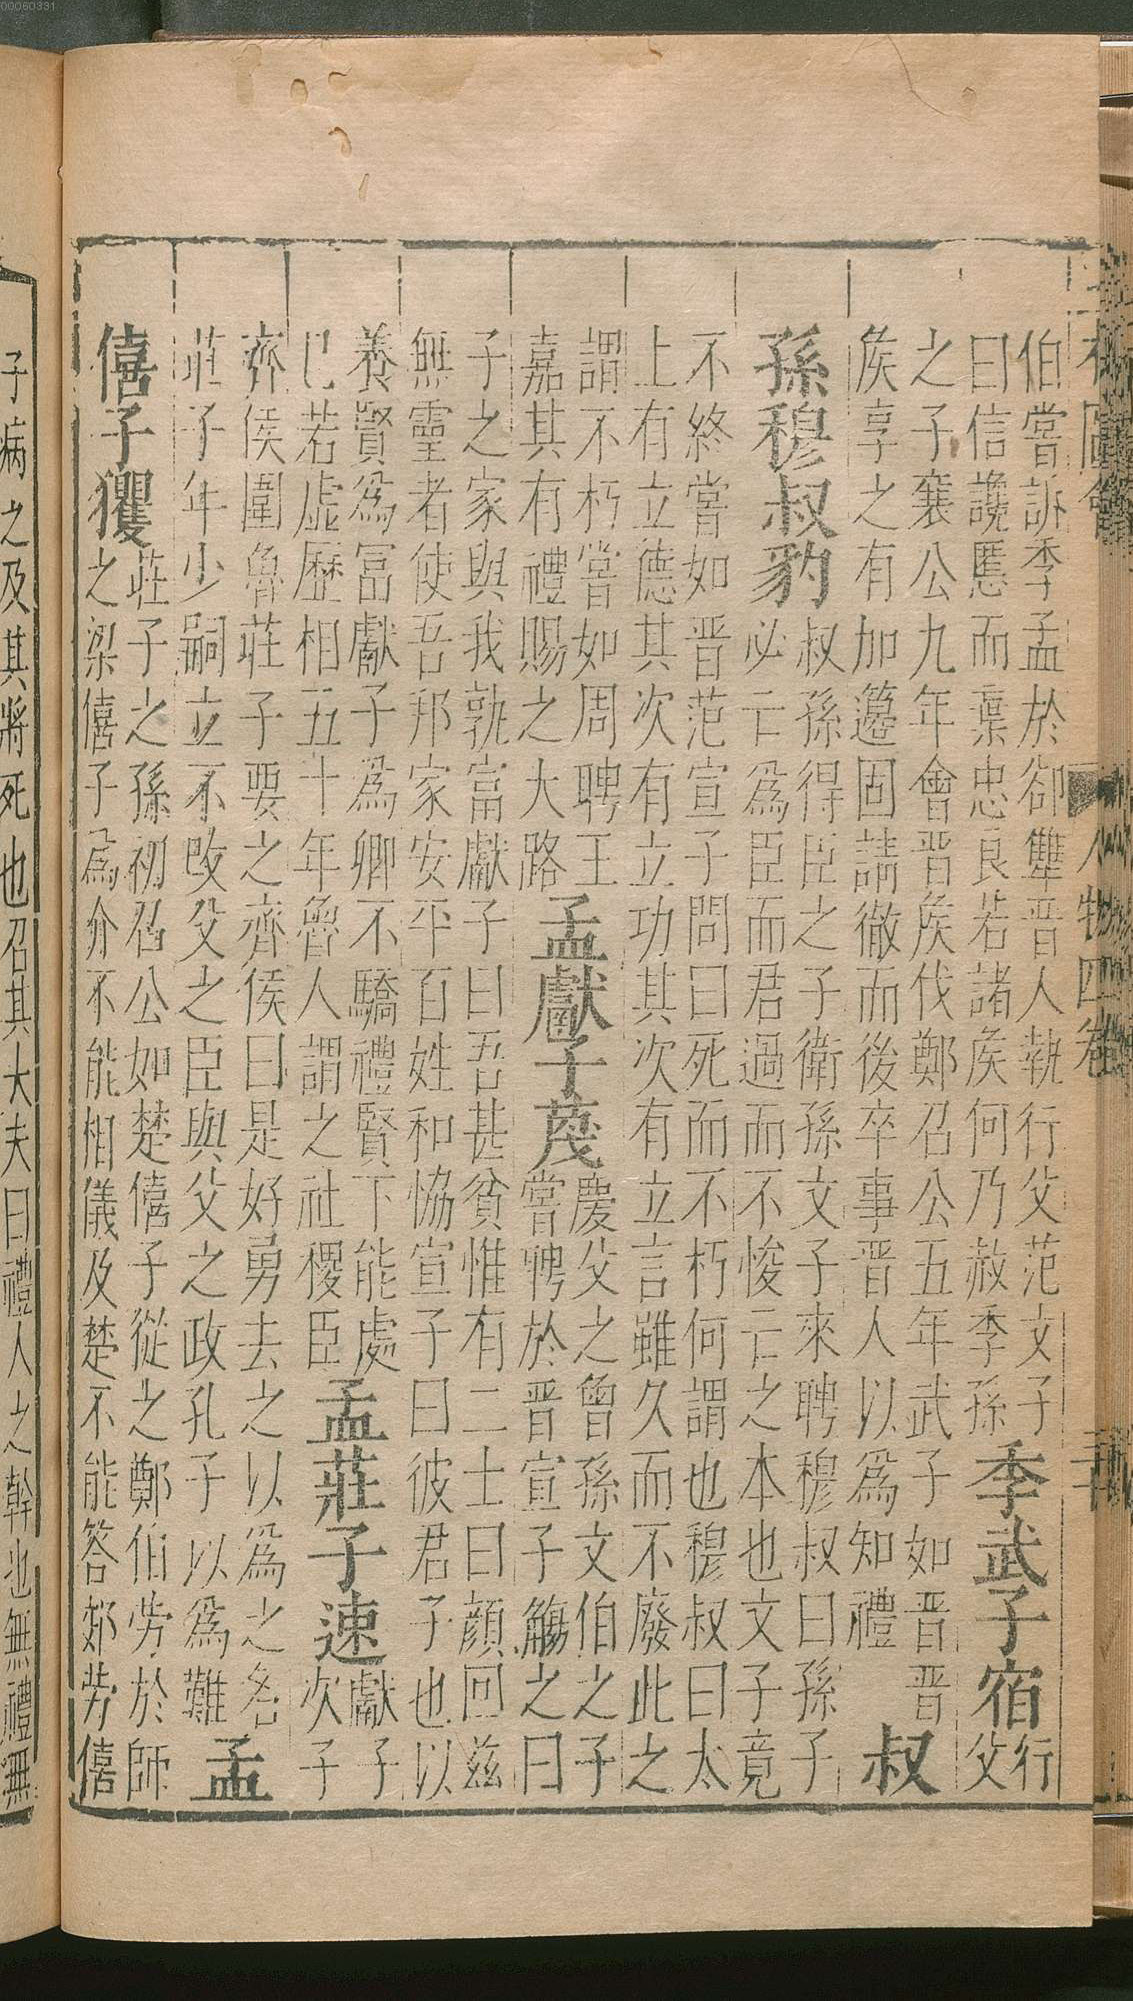 00060331
伯嘗訴季孟於卻犨晉人執行父范文子
曰信讒慝而棄忠良若諸侯何乃赦季孫
季武子宿
行
父
之子襄公九年會晉侯伐鄭召公五年武子如晉晉
侯享之有加籩固請徹而後卒事晉人以為知禮
叔
孫穆叔豹
叔孫得臣之子衛孫文子來聘穆叔曰孫子
必亡為臣而君過而不悛亡之本也文子竟
不終嘗如晉范宣子問曰死而不朽何謂也穆叔曰太
上有立德其次有立功其次有立言雖久而不廢此之
謂不朽嘗如周聘王
嘉其有禮賜之大路
孟獻子茂
慶父之曾孫文伯之子
嘗聘於晉宣子觴之曰
子之家與我孰富獻子曰吾甚貧惟有二士曰顏回茲
無靈者使吾邦家安平百姓和恊宣子曰彼君子也以
養賢為富獻子為卿不驕禮賢下能處
己若虛歷相五十年魯人謂之社稷臣
孟莊子速
獻子
次子
齊侯圍魯莊子要之齊侯曰是好勇去之以為之名
莊子年少嗣立不改父之臣與父之政孔子以為難
孟
僖子玃
莊子之孫初召公如楚僖子從之鄭伯勞於師
之梁僖子為介不能相儀及楚不能答郊勞僖
子病之及其將死也召其大夫曰禮人之幹也無禮無